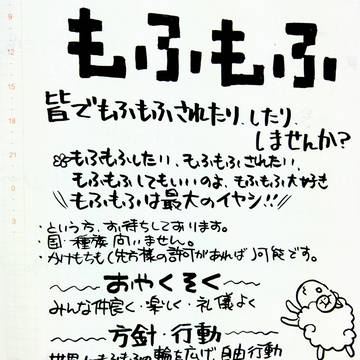 もふもふ
皆でもふもふされたり、したり、
しませんか?
もふもふしたい、もふもふされたい、
もふもふしてもいいのよ、もふもふ大好き
\\もふもふは最大のイヤシ!!//
・という方、お待ちしております。
・国・種族問いません。
・かけもちも(先方様の許可があれば)可能です。
おやくそく
みんな仲良く・楽しく・礼儀よく
方針・行動
世界にもふもふの輪を広げ、自由行動
9
12
15
18
21
0
3